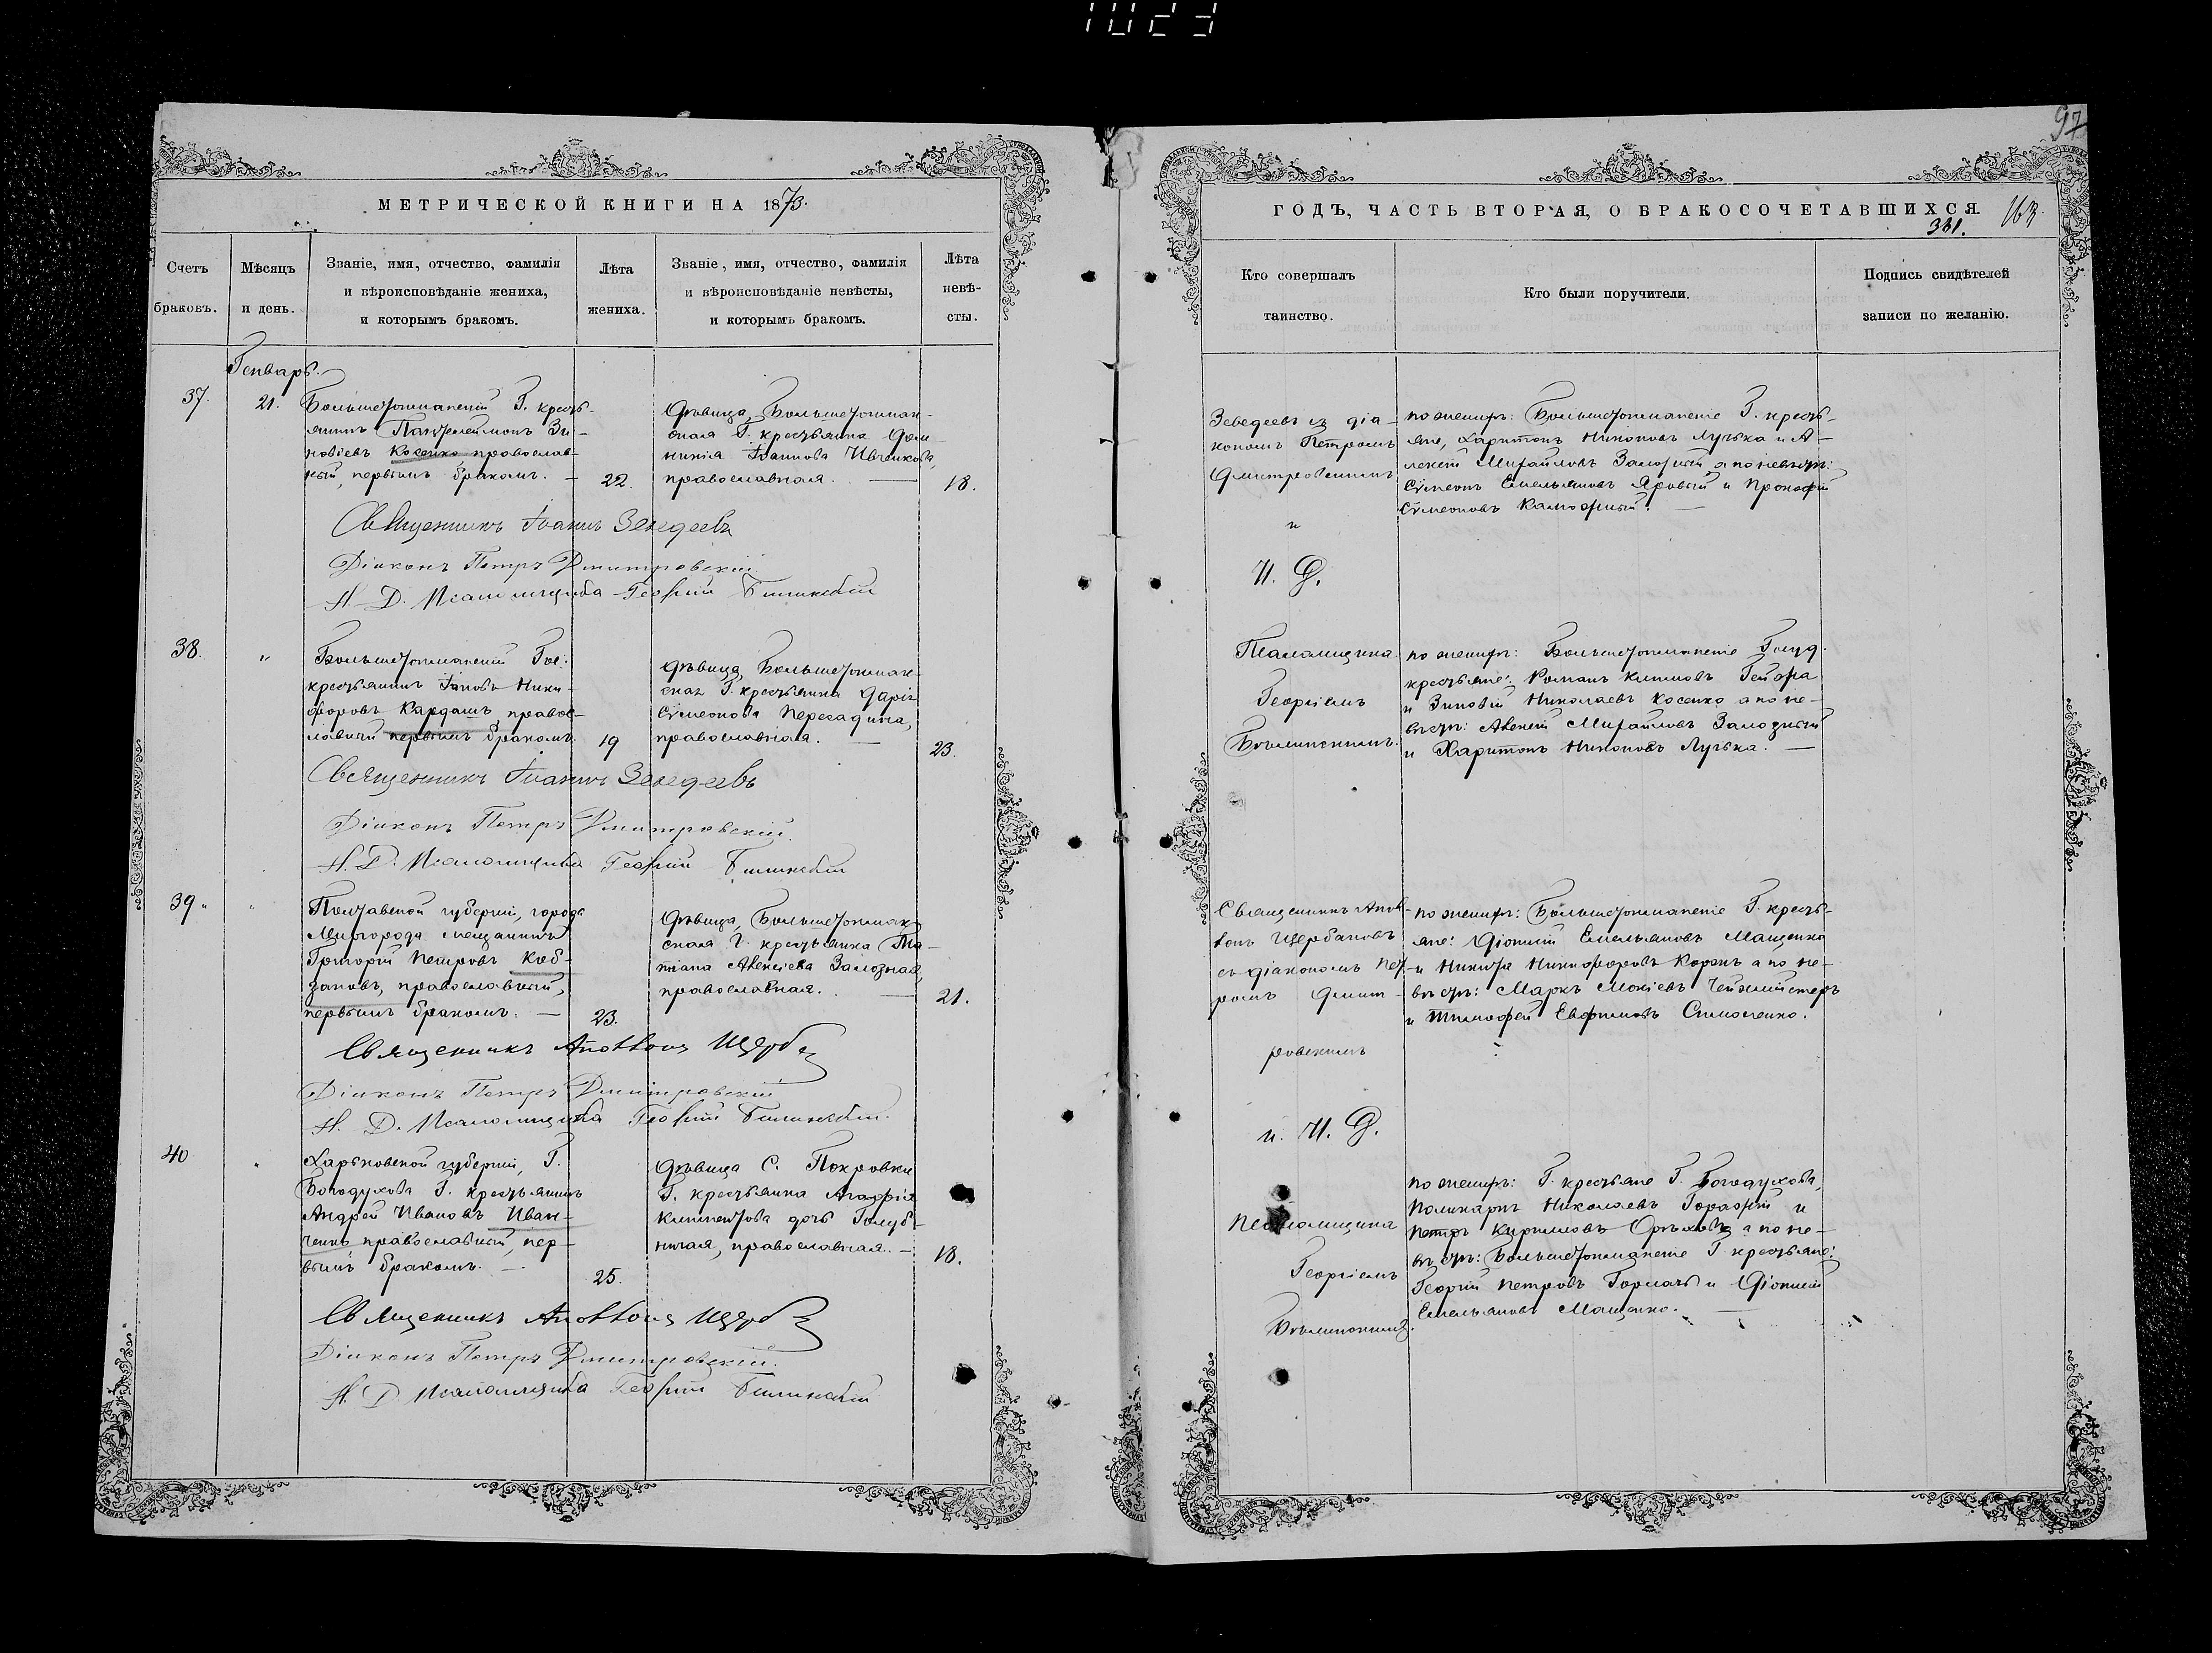 1023
97
МЕТРИЧЕСКОЙ КНИГИ НА 1873.
Счетъ
браковъ.
Мѣсяцъ
и день.
Званіе, имя, отчество, фамилія
и вѣроисповѣданіе жениха,
и которымъ бракомъ.
Лѣта
жениха.
Званіе, имя, отчество, фамилія
и вѣроисповѣданіе невѣсты,
и которымъ бракомъ.
Лѣта
невѣ-
сты.
Генварь.
37.
21.
Большетокмакскій Г. кресть-
янинъ Пантелеимонъ Зи-
новіевъ Косенко православ-
ный, первымъ бракомъ. —
22.
Дѣвица, Большетокмак-
ская Г. крестьянка Дом-
никія Іваннова Ивченкова,
православная. —
18.
Священникъ Іоаннъ Зеведеевъ
Діаконъ Петръ Дмитровскій.
И. Д. Псаломщика Георгій
38.
"
Большетокмакскій Гос.
крестьянинъ Іаковъ Ники-
форовъ Кардашъ, правос-
лавный первымъ бракомъ.
19
дѣвица, Большетокмак-
ская Г. крестьянка Дарія
Сѵмеонова Пересадина,
православная. —
23.
Священникъ Іоаннъ Зеведеевъ
Діаконъ Петръ Дмитровскій.
И. Д. Псаломщика Георгій
39
"
Полтавской губерніи, города
Миргорода мещанинъ
Григорій Петровъ Коб-
зановъ, православный,
первымъ бракомъ. —
23.
Дѣвица, Большетокмак-
ская Г. крестьянка Та-
тіана Алексіева Залозная,
православная. —
21.
Священникъ
Діаконъ Петръ Дмитровскій
И. Д. Псаломщика Георгій
40
"
Харьковской губерніи, Г.
Богодухова Г. крестьянинъ
Андрей Ивановъ Иван-
ченко православный, пер-
вымъ бракомъ. —
25.
Дѣвица С. Покровки
Г. крестьянка Агафія
Климентова дочь Голуб-
ничая, православная. —
18.
Священникъ
Діаконъ Петръ Дмитровскій.
И. Д. Псаломщика Георгій
ГОДЪ, ЧАСТЬ ВТОРАЯ, О БРАКОСОЧЕТАВШИХСЯ.
381.
163.
Кто совершалъ
таинство.
Кто были поручители.
Подпись свидѣтелей
записи по желанію.
Зеведеевъ съ діа-
кономъ Петромъ
Дмитровскимъ
и
И. Д.
по женихѣ: Большетокмакскіе Г. кресть-
яне, Харитонъ Никоновъ Лучька и А-
лексій Михайловъ Залозный, а по невѣстѣ:
Сѵмеонъ Емельяновъ Яровый и Прокофій
Сѵмеоновъ
Псаломщика
Георгіемъ
по женихѣ: Большетокмакскіе Госуд.
крестьяне: Романъ Климовъ
и Зиновій Николаевъ Косенко а по не-
вѣстѣ: Алексій Михайловъ Залозный
и Харитонъ Никоновъ Лучька. —
Священникъ
Щербаковъ
съ діакономъ Пет-
ромъ Дмит-
ровскимъ
и. И. Д.
по женихѣ: Большетокмакскіе Г. кресть-
яне: Діонисій Емельяновъ Мащенко
и Никита Никифоровъ Коржъ а по не-
вѣстѣ: Маркъ
и Тимофей Евфимовъ Симоненко.
Псаломщика
Георгіемъ
по женихѣ: Г. крестьяне Г. Богодухова,
Поликарпъ Николаевъ и
Петръ Кириловъ Орѣховъ а по не-
вѣстѣ: Большетокмакскіе Г. крестьяне:
Георгій Петровъ и Діонисій
Емельяновъ Мащенко. —